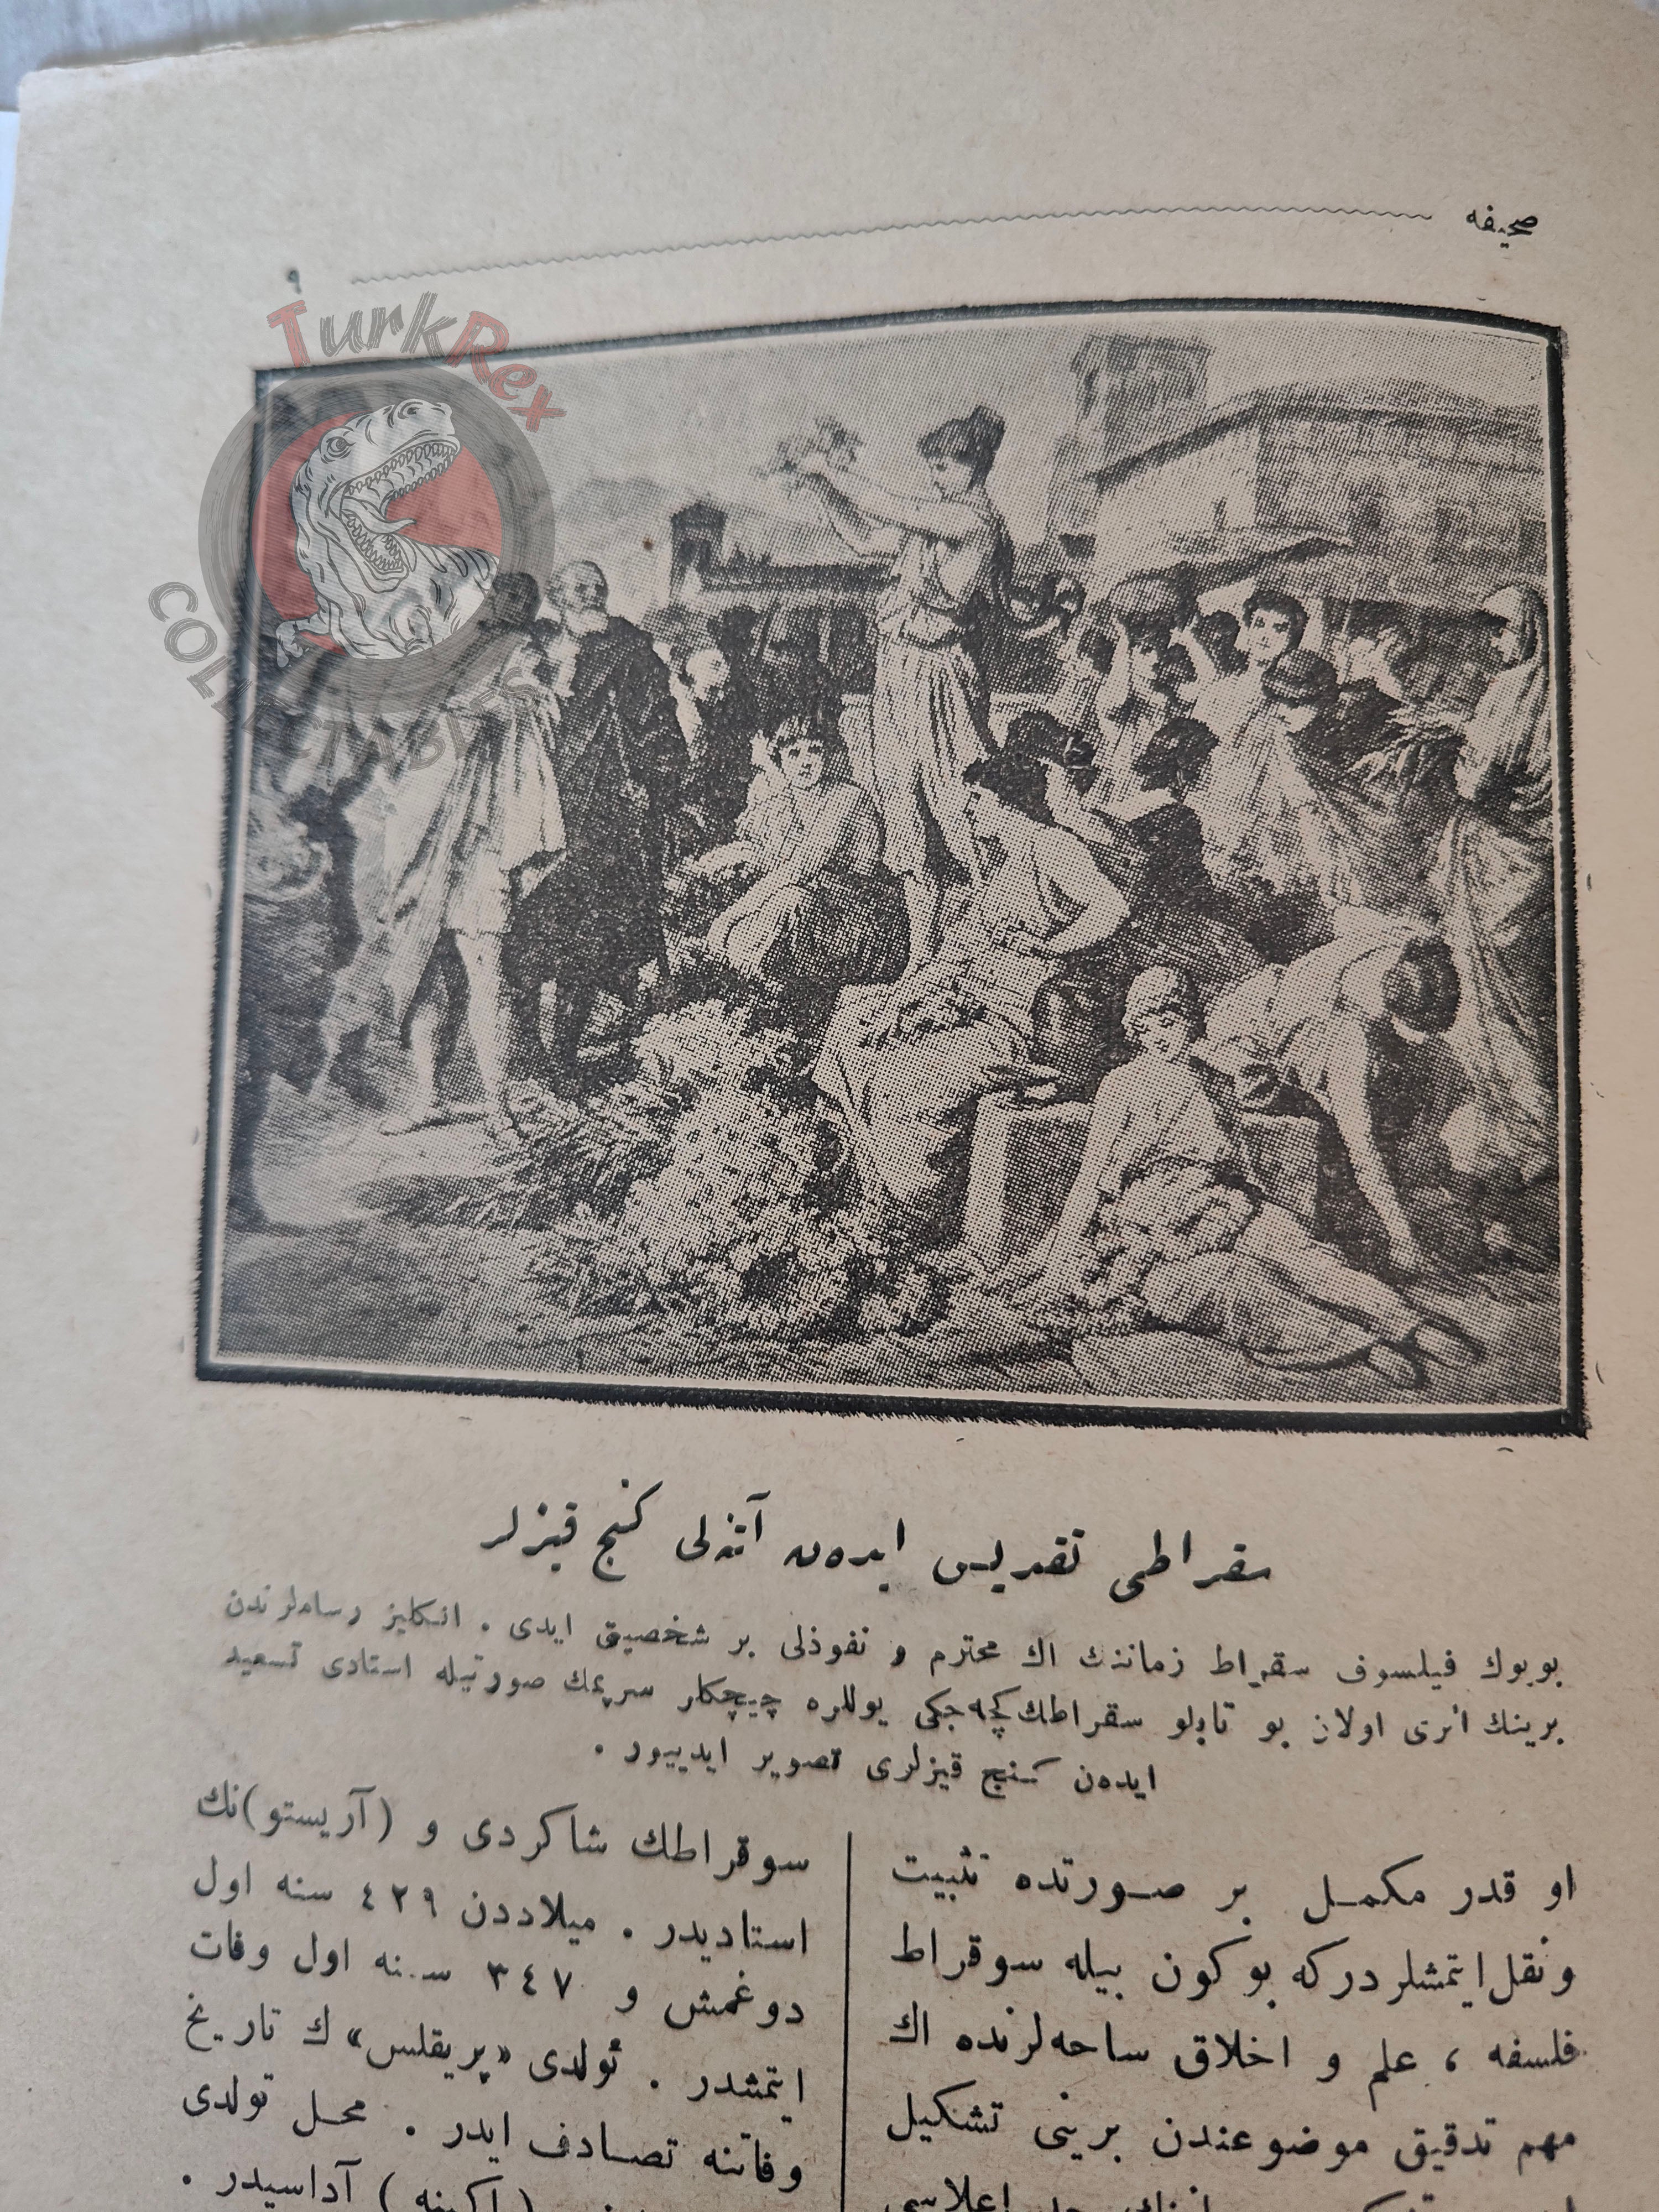 صحیفه
٩
TurkRex
COLLECTABLES
سقراطی تقدیس ایده‌ن آتنه‌لی کنج قیزلر
بویوك فیلسوف سقراط زماننك اك محترم و نفوذلی بر شخصیتی ایدی . انکلیز رساملرندن
برینك اثری اولان بو تابلو سقراطك کچه‌جکی یوللره چیچکلر سرپمك صورتیله استادی تسعید
ایده‌ن کنج قیزلری تصویر ایدییور .
او قدر مکمـل بر صـورتده تثبیت
ونقل ایتمشلردر که بو کون بیله سوقراط
فلسفه ، علم و اخلاق ساحه‌لرنده اك
مهم تدقیق موضوعندن برینی تشکیل
سوقراطك شاکردی و (آریستو)نك
استادیدر . میلاددن ٤٢٩ سنه اول
دوغمش و ٣٤٧ سنه اول وفات
ایتمشدر . تولدی «پریقلس» ك تاریخ
وفاتنه تصادف ایدر . محـل تولدی
آداسیدر .